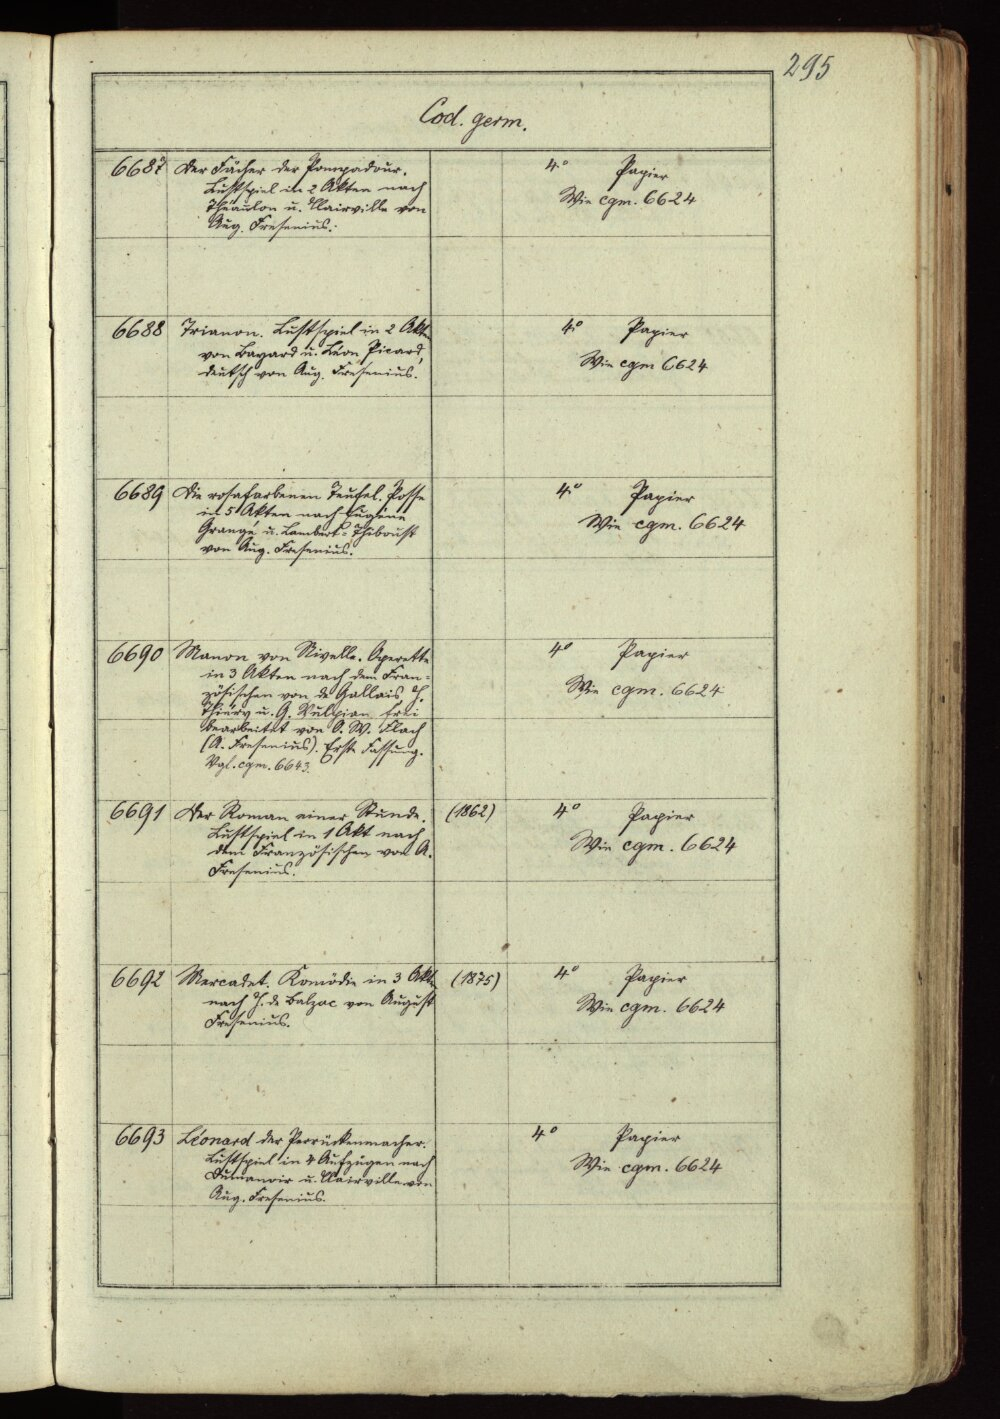 295
Cod. germ.
6687 Der Fächer der Pompadour. 4° Papier
Lustspiel in 2 Akten nach Wie cgm. 6624
Théaulon u. Clairville von
Aug. Fresenius.
6688 Trianon. Lustspiel in 2 Akten 4° Papier
von Bayard u. Léon Picard, Wie cgm 6624
deutsch von Aug. Fresenius.
6689 Die rosafarbenen Teufel. Posse 4° Papier
in 5 Akten nach Eugène Wie cgm. 6624
Grangé u. Lambert-Thiboust
von Aug. Fresenius.
6690 Manon von Nivelle. Operette 4° Papier
in 3 Akten nach dem Fran- Wie cgm. 6624
zösischen von de Gallais, H.
Thiéry u. G. Vulpian frei
bearbeitet von O. W. Flach
(A. Fresenius). Erste Fassung.
Vgl. cgm. 6643.
6691 Der Roman einer Stunde. (1862) 4° Papier
Lustspiel in 1 Akt nach Wie cgm. 6624
dem Französischen von A.
Fresenius.
6692 Mercadet. Komödie in 3 Akten (1875) 4° Papier
nach H. de Balzac von August Wie cgm. 6624
Fresenius.
6693 Léonard der Perrückenmacher. 4° Papier
Lustspiel in 4 Aufzügen nach Wie cgm. 6624
Dumanoir u. Clairville von
Aug. Fresenius.